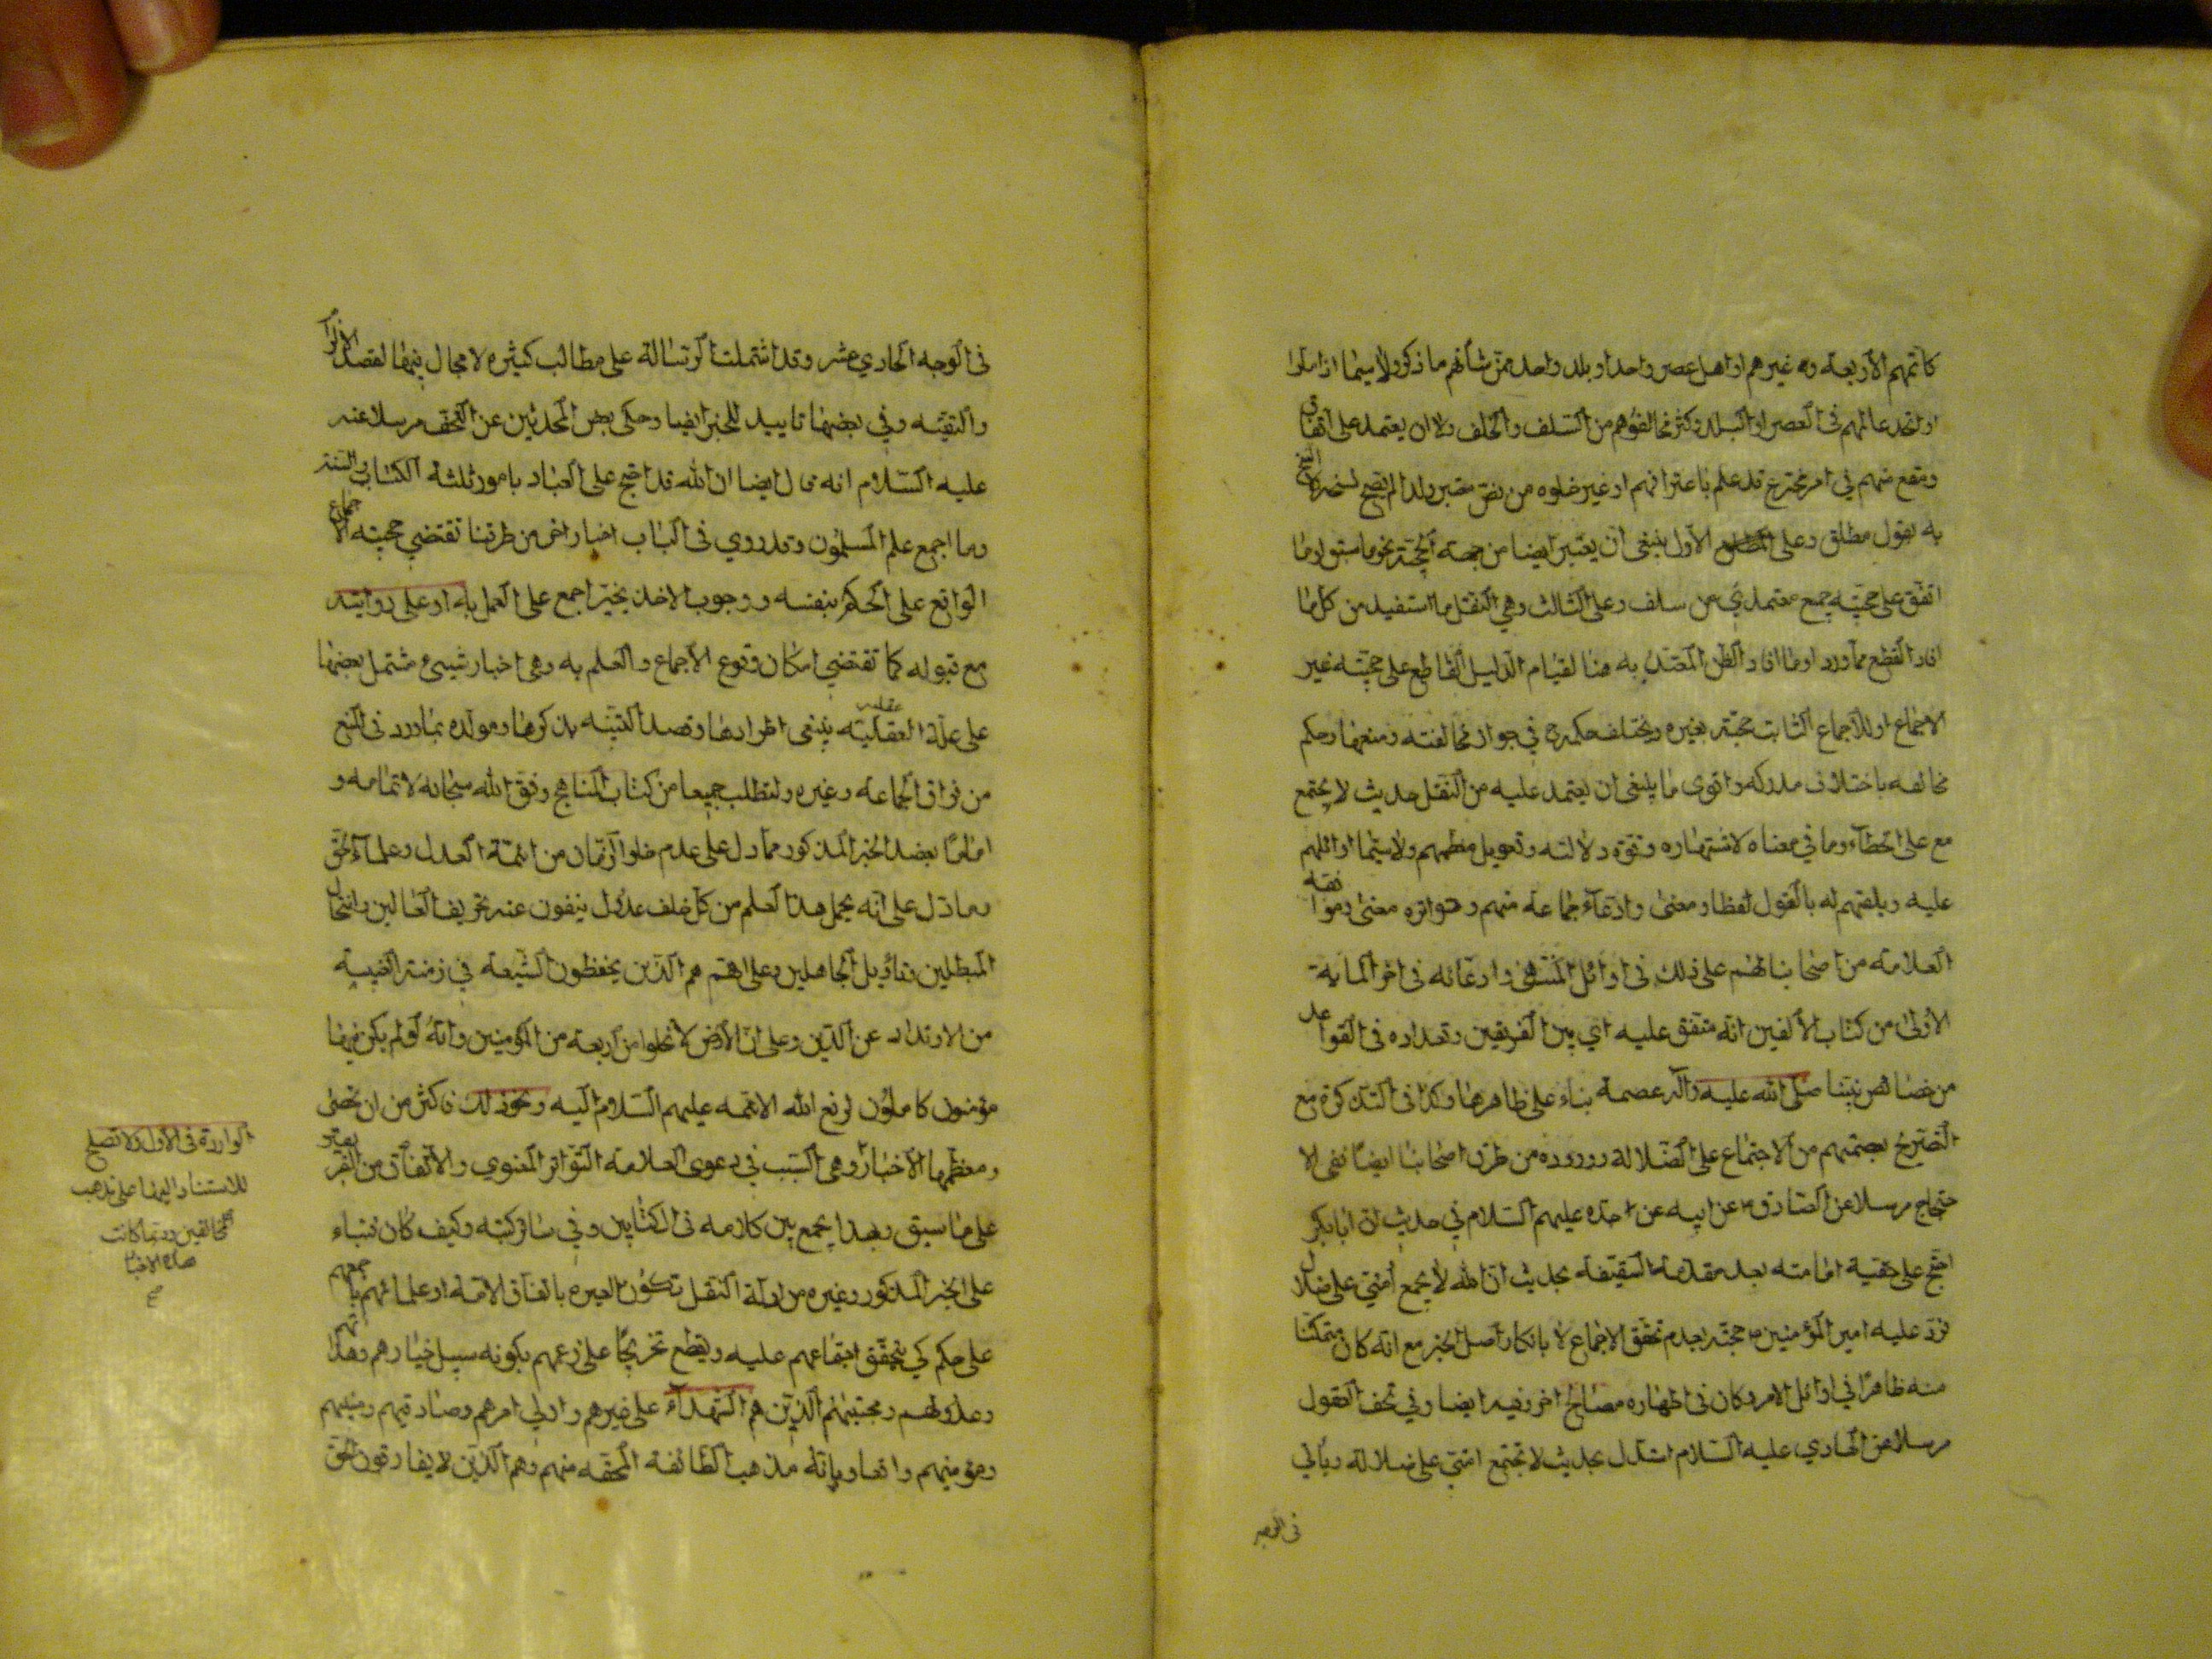 كأئمتهم الأربعة وغيرهم او اهل عصر واحد او بلد واحد ممن شأنهم ما ذكر ولا سيما اذا
او اتحد عالمهم في العصر او البلد وكثر مخالفوهم من السلف والخلف ولا ان يعتمد على اتفاق
وقع منهم في امر مخترع قد علم باعترافهم او غيره خلوه من نص معتبر ولذا لم يصح
به بقول مطلق وعلى الأول ينبغي ان يعتبر ايضا من جهة الحجة نحو ما سبق او ما
اتفق على حجيته جمع معتمد من سلف وعلى الثالث وهي النقل ما استفيد من كل ما
افاد القطع مما ورد او ما افاد الظن المعتد به هنا لقيام الدليل القاطع على حجيته غير
الاجماع او للاجماع الثابت حجيته بغيره ويختلف حكمه في جواز مخالفته ومنعها وحكم
مخالفه باختلاف مدركه واقوى ما ينبغي ان يعتمد عليه من النقل حديث لا يجتمع
مع على الخطاء وما في معناه لاشتهاره وقوة دلالته وتعويل معظمهم ولا سيما اوائلهم
عليه وتلقيهم له بالقبول لفظا ومعنى وادعاء جماعة منهم تواتره معنى وموافقة
العلامة من اصحابنا لهم على ذلك في اوائل المنتهى وادعائه في اخر المائة
الأولى من كتاب الألفين انه متفق عليه اي بين الفريقين وتعداده في القواعد
من خصائص نبينا صلى الله عليه وآله عصمة بناء على ظاهرها وكذا في التذكرة مع
التصريح بعصمتهم من الاجتماع على الضلالة ووروده من طرق اصحابنا ايضا ففي الا
حتجاج مرسلا عن الصادق ع عن ابيه عن جده عليهم السلام في حديث ان ابا بكر
احتج على حقية امامته بعد مقدمة السقيفة بحديث ان الله لا يجمع أمتي على ضلال
فرد عليه امير المؤمنين ع حجته بعدم تحقق الاجماع لا بانكار اصل الخبر مع انه كان متمكنا
منه ظاهرا في اوائل الامر وكان في اظهاره مصالح اخر وفيه ايضا وفي تحف العقول
مرسلا عن الهادي عليه السلام استدل بحديث لا تجتمع امتي على ضلالة ويأتي
في الوجه
في الوجه الحادي عشر وقد اشتملت الرسالة على مطالب كثيرة لا مجال فيها لقصد
والتقية وفي بعضها تاييد للخبر ايضا وحكى بعض المحدثين عن التحف مرسلا عنه
عليه السلام انه قال ايضا ان الله قد احتج على العباد بامور ثلثة الكتاب والسنة
وما اجمع عليه المسلمون وقد روي في الباب اخبار اخر من طرقنا تقتضي حجية الاجماع
الواقع على الحكم بنفسه ووجوب الاخذ بخبر اجمع على العمل به او على روايته
مع قبوله كما تقتضي امكان وقوع الاجماع والعلم به وهي اخبار شتى مشتمل بعضها
على علة عقلية ينبغي اطرادها وقصد التنبيه بذكرها ومؤيده بما ورد في المنع
من فراق الجماعة وغيره ولتطلب جميعا من كتاب المناهج وفق الله سبحانه لاتمامه و
اما بعضد الخبر المذكور مما دل على عدم خلو الزمان من ائمة العدل وعلماء الحق
وما دل على انه يحمل هذا العلم من كل خلف عدول ينفون عنه تحريف الغالين وانتحال
المبطلين وتأويل الجاهلين وعلى انهم هم الذين يحفظون الشيعة في زمن الغيبة
من الارتداد عن الدين وعلى ان الأرض لا تخلو من اربعة من المؤمنين وانه لو لم يكن فيها
مؤمنون كاملون لرفع الله الائمة عليهم السلام اليه ونحو ذلك فاكثر من ان تحصى
ومعظمها الأخبار وهي السبب في دعوى العلامة التواتر المعنوي والاتفاق من
على ما سبق وبهذا يجمع بين كلامه في الكتابين وفي سائر كتبه وكيف كان فبناء
على الخبر المذكور وغيره من ادلة النقل تكون العبرة باتفاق الامة او علمائهم
على حكم كي يتحقق اجتماعهم عليه ويقطع تخريجا على زعمهم بكونه سبيل خيارهم
وعدولهم ومجتبيهم الذين هم الشهداء على غيرهم واولي امرهم وصادقيهم
ومؤمنيهم واتقياؤهم وبانه مذهب الطائفة المحقة منهم وهم الذين لا يفارقون الحق
الواردة في الأول ولا تصلح
للاستناد اليها على مذهب
المخالفين وربما كانت
هذه الاخبار